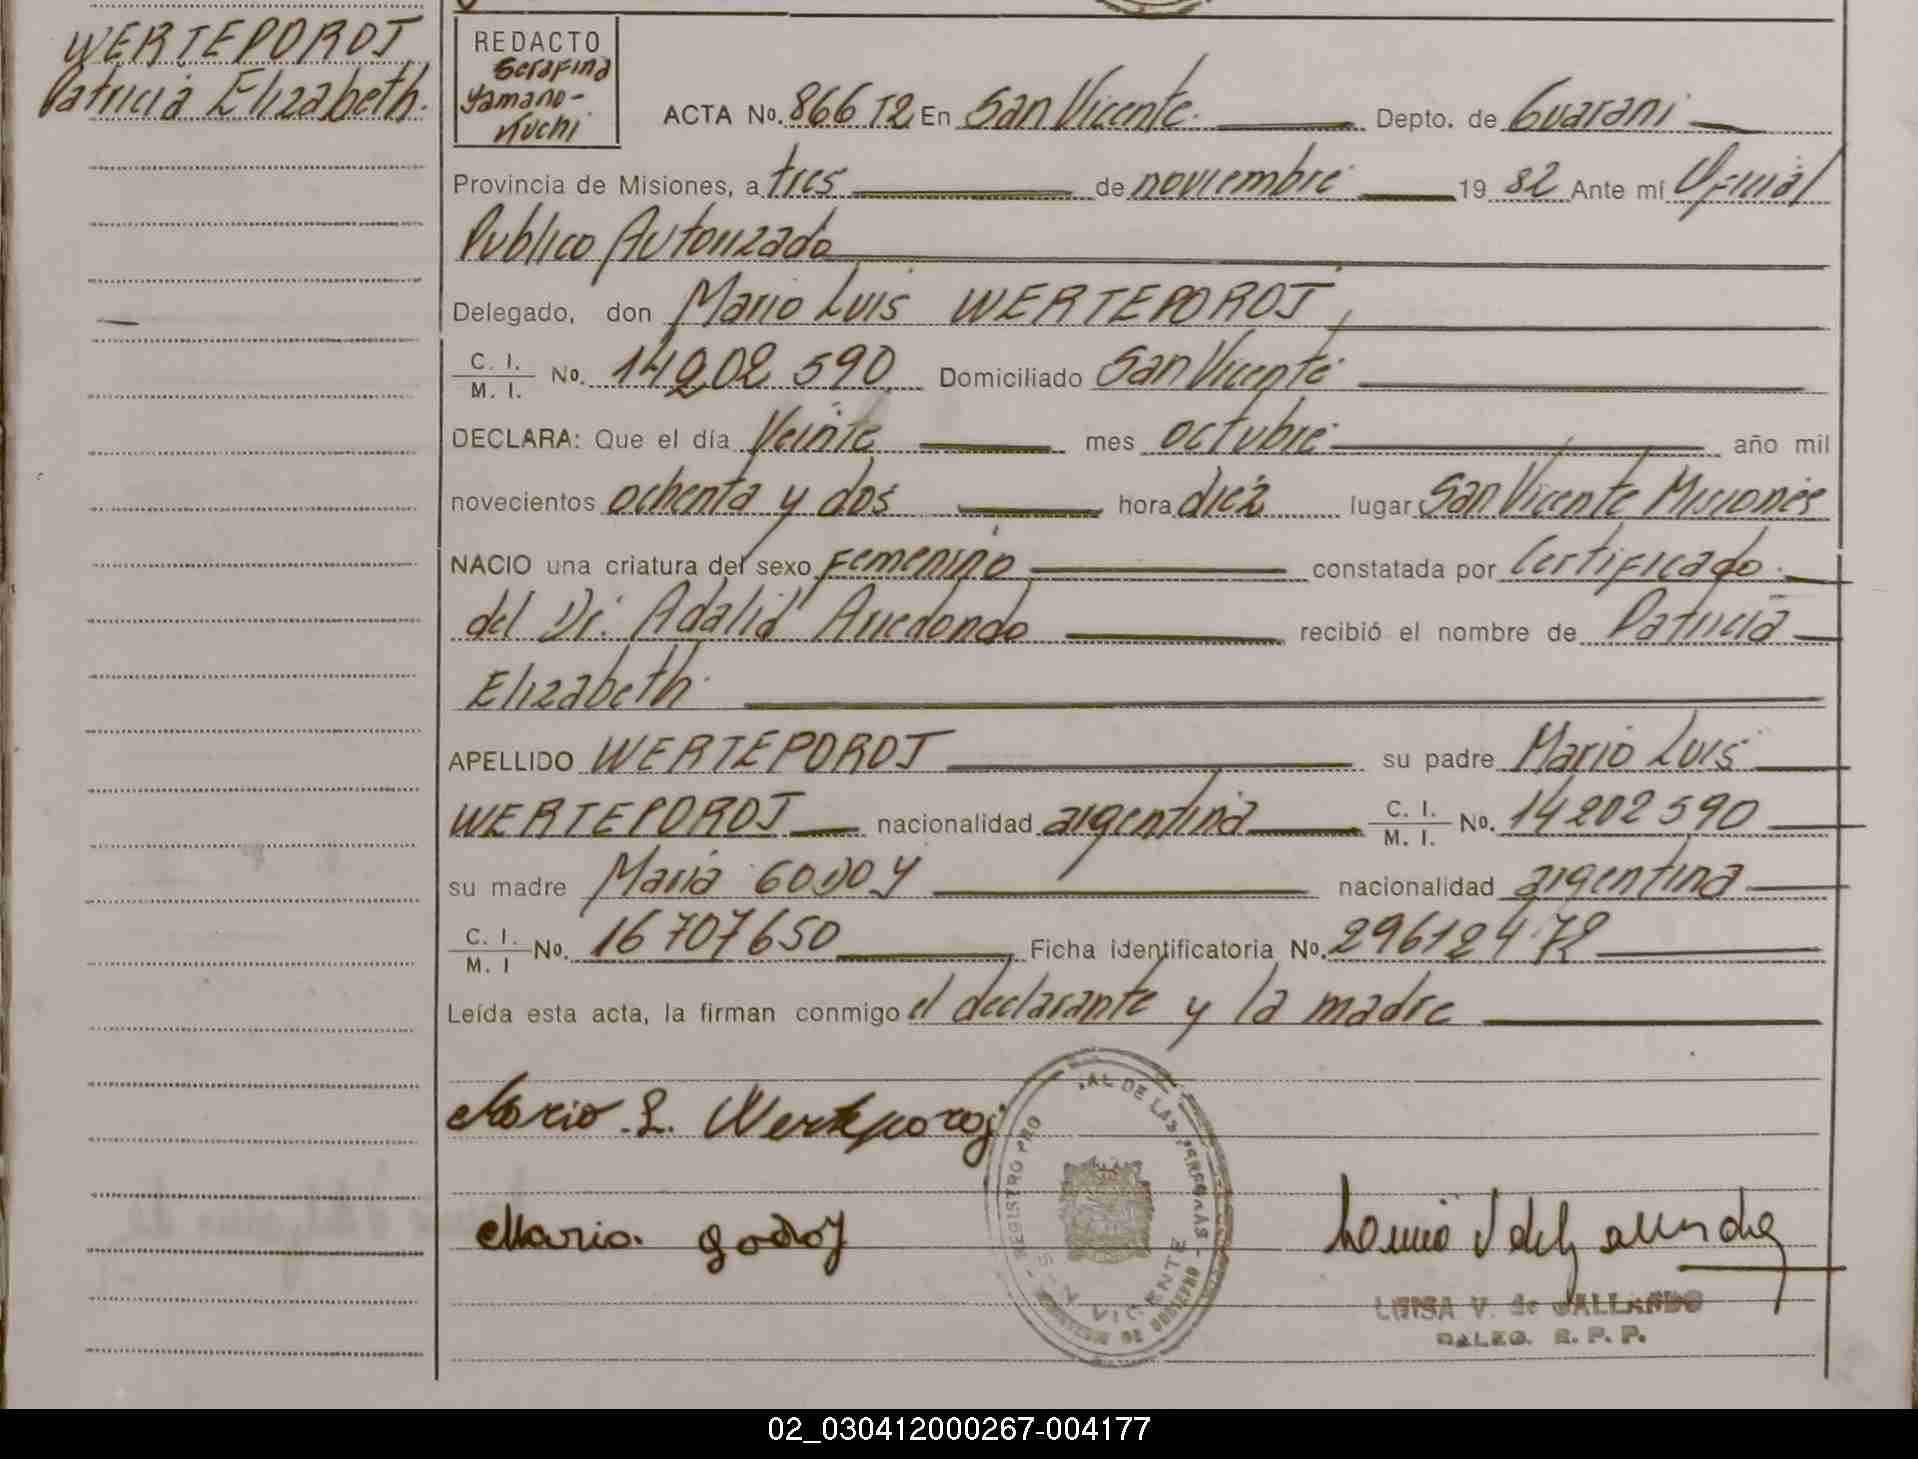 WERTEPOROJ
Patricia Elizabeth.
REDACTO
Serafina
Yamano-
Kuchi
ACTA No. 866 T2 En San Vicente. Depto. de Guarani
Provincia de Misiones, a tres de noviembre 19 82 Ante mí Oficial
Publico Autorizado
Delegado, don Mario Luis WERTEPOROJ
C. I. / M. I. No. 14202 590 Domiciliado San Vicente
DECLARA: Que el día Veinte mes octubre año mil
novecientos ochenta y dos hora diez lugar San Vicente Misiones
NACIO una criatura del sexo Femenino constatada por Certificado
del Dr. Adalid Arredondo recibió el nombre de Patricia
Elizabeth
APELLIDO WERTEPOROJ su padre Mario Luis
WERTEPOROJ nacionalidad argentina C. I. / M. I. No. 14202590
su madre Maria GODOY nacionalidad argentina
C. I. / M. I No. 16707650 Ficha identificatoria No. 29612472
Leída esta acta, la firman conmigo el declarante y la madre
Mario. L. Werteporoj
Maria. godoy
REGISTRO PRO AL DE LAS PERSONAS
VICENTE
LUISA V. de GALLARDO
DALEG. R. P. P.
02_030412000267-004177